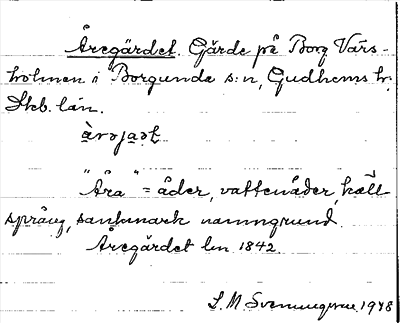 Åregärdet. Gärde på Borg Vårs-
holmen i Borgunda s:n, Gudhems hr.
Skb. län.
"Åra" = åder, vattenåder, käll-
språng, sankmark namngrund.
Åregärdet lm 1842.
S. M Svenungsson 1948